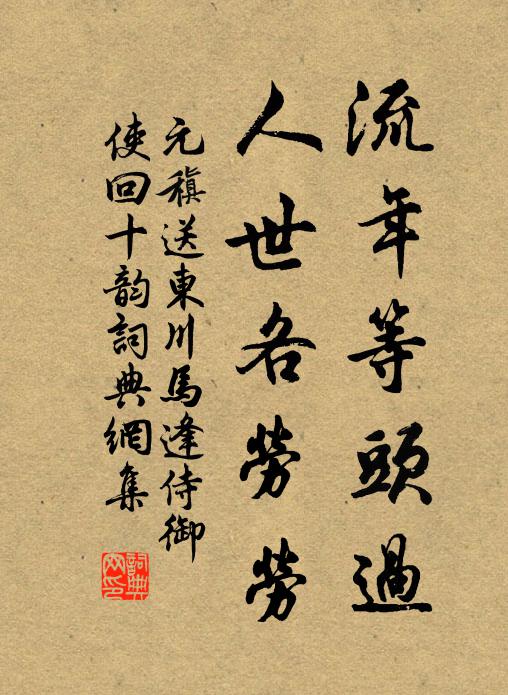 流年等頭過
人世各勞勞
元稹送東川馬逢侍御
使回十韵詞典網集
詞典
网印